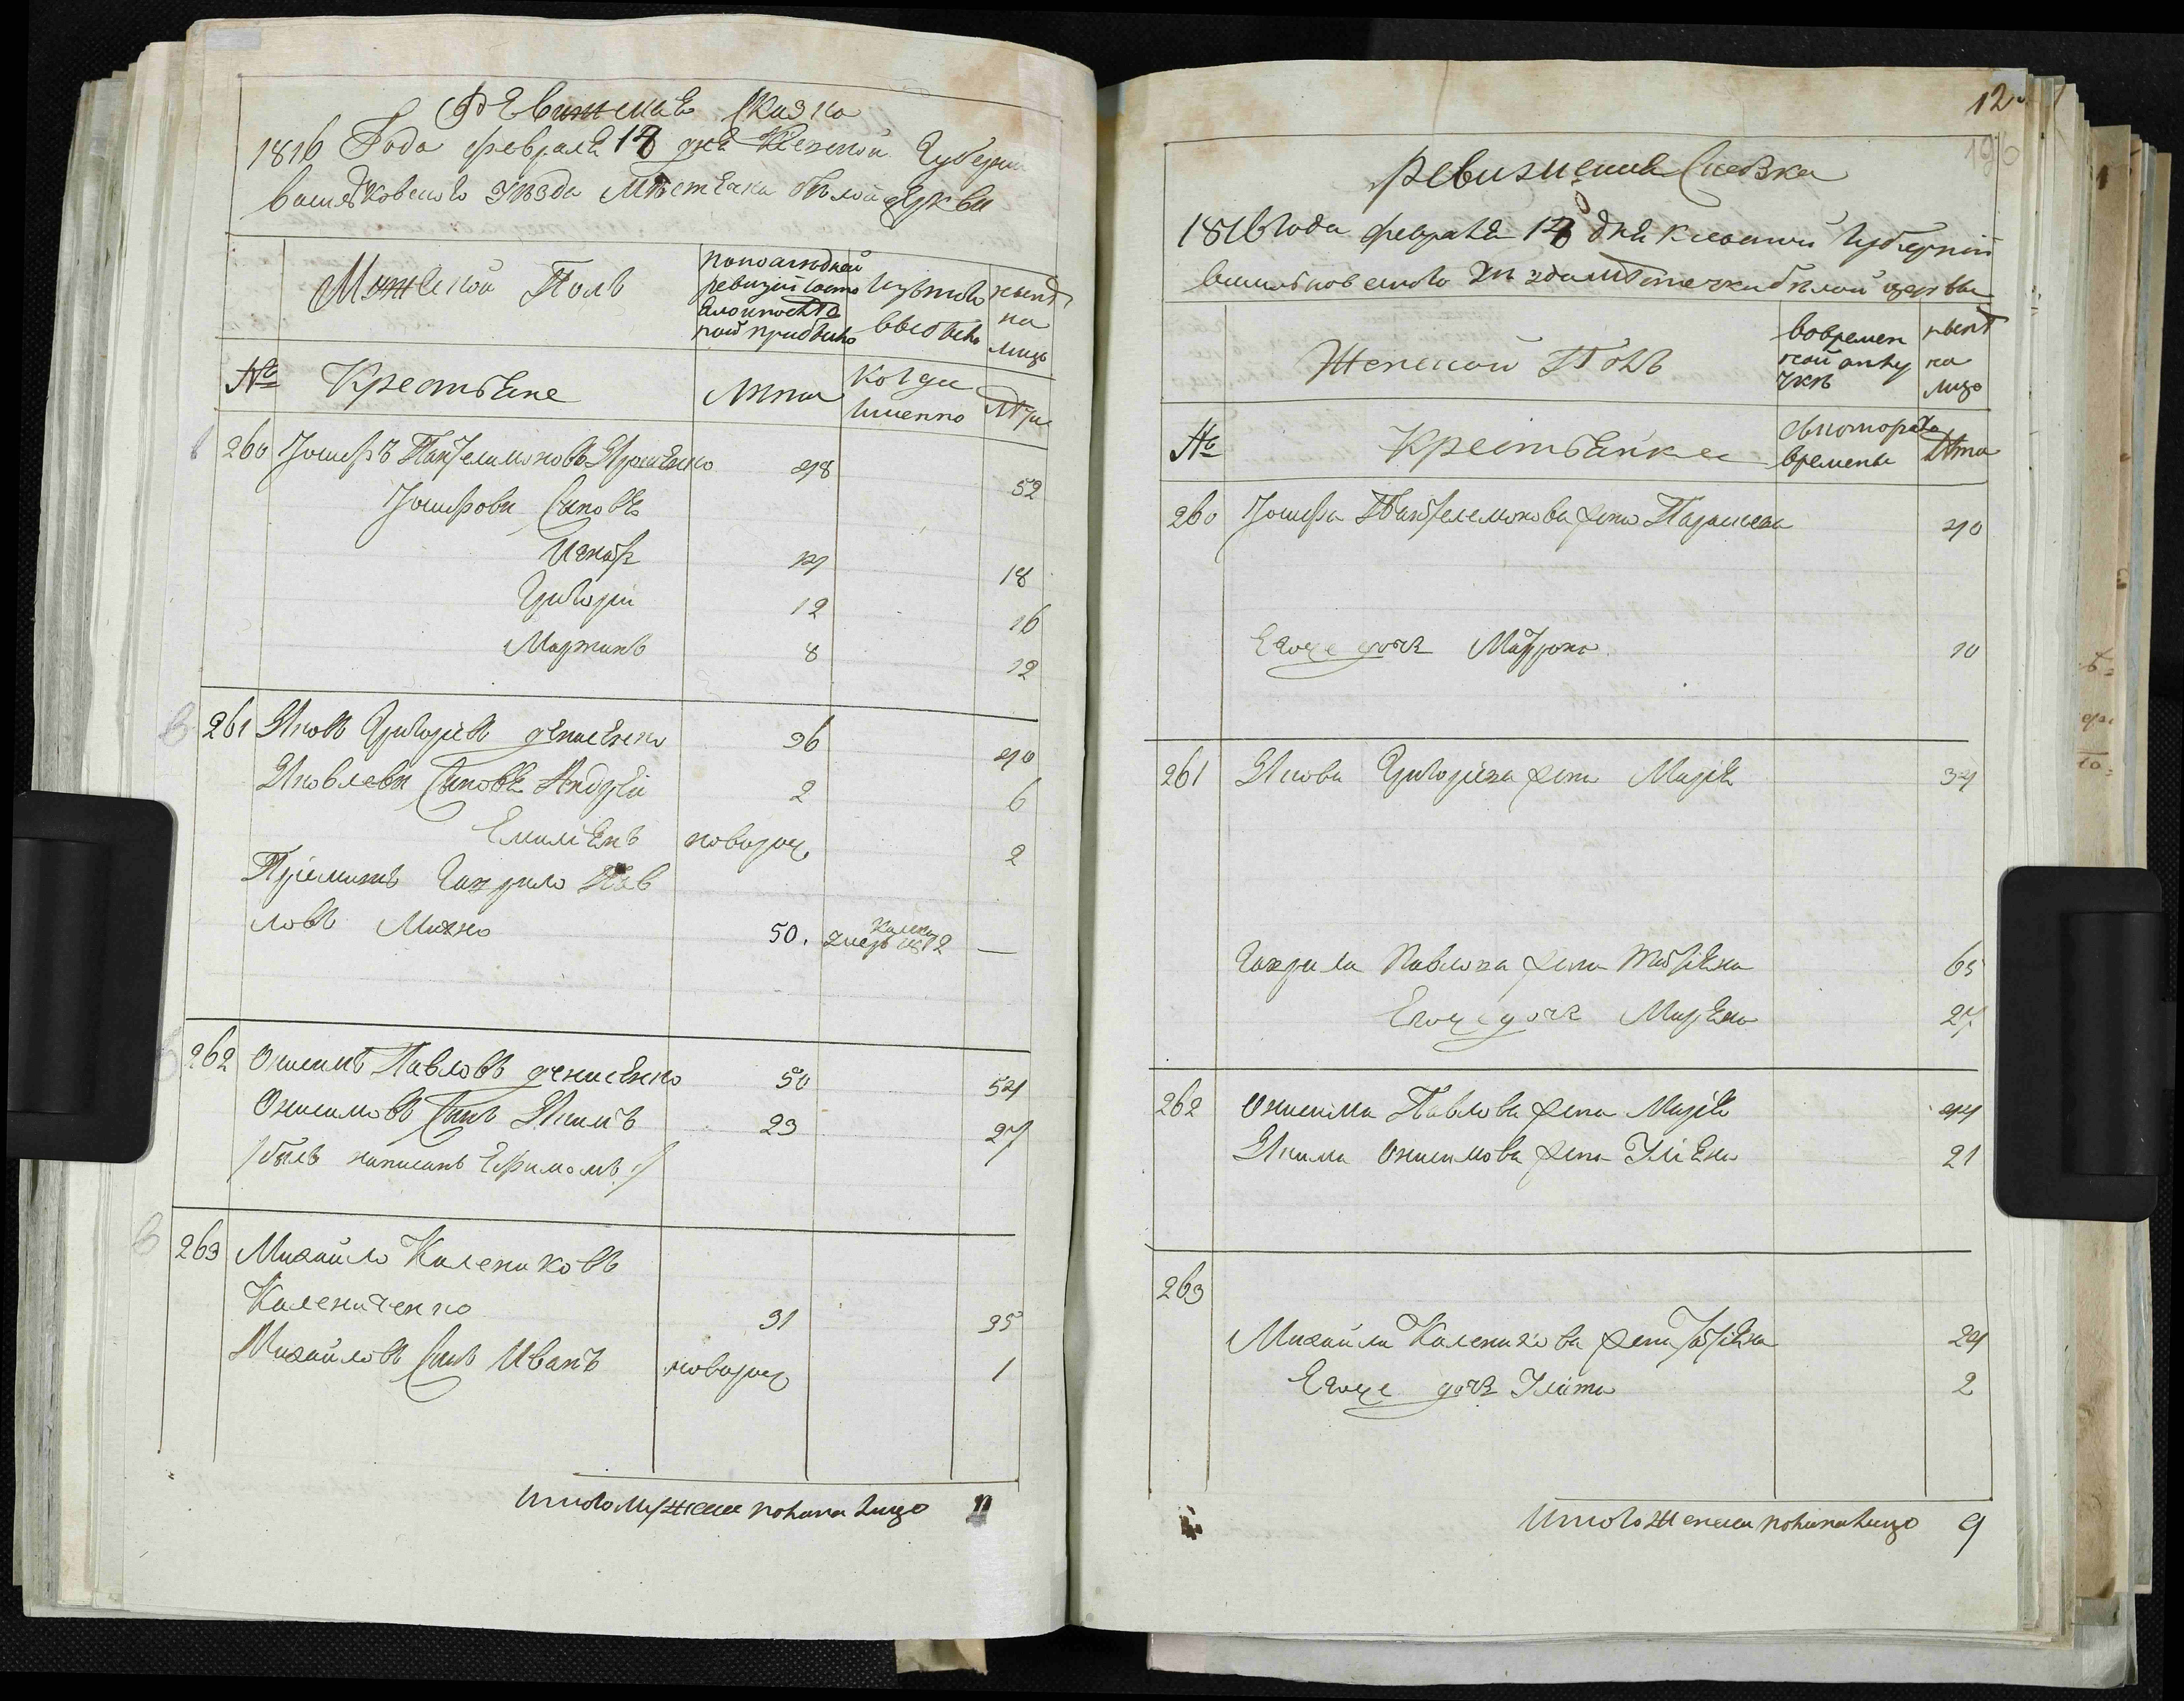 Ревизская Сказка
1816 Года февраля 18 дня Киевской Губернии
васильковского уезда Мѣстечка бѣлой церкви
Мужеской Полъ
по последней ревизии состояло и после той прибыло
изъ того выбыло
ныне на лицо
№
Крестьяне
Лѣта
когда именно
Лѣта
260 Іосифъ Пантелимоновъ Ярошенко 48 52
Іосифови Синовя
Игнатъ 14 18
Григорій 12 16
Мартинъ 8 12
261 Яковъ Григоріевъ денисенко 36 40
Яковлеви Синовя Андрей 2 6
Емиліянъ новорож 2
Пріймитъ Гаврило Пав
ловъ Михно 50. умеръ 1812 —
262 Онисимъ Павловъ денисенко 50 54
Онисимовъ Синъ Якимъ 23 27
/былъ написанъ Ефимомъ:/
263 Михайло Калениковъ
Калениченко 31 35
Михайловъ Синъ Иванъ новорож 1
Итого мужеска пола на лицо 11
12
196
ревизская Сказка
1816 года февраля 18 дня киевской губерний
васильковского уезда мѣстечка бѣлой церквы
Женской Полъ
во временной отлучкѣ
ныне на лицо
№
Крестьянки
съ котораго времены
Лѣта
260 Іосифа Пантелемонова жена Параскева 40
Егоже дочь Матрона 10
261 Якова Григоріева жена Марія 34
Гаврила Павлова жена Татіяна 65
Егоже дочь Маріяна 27
262 Онисима Павлова жена Марія 44
Якима Онисимова жена Уліяна 21
263
Михайла Каленикова жена Татіяна 24
Егоже дочь Улита 2
Итого Женска пола на лицо 9